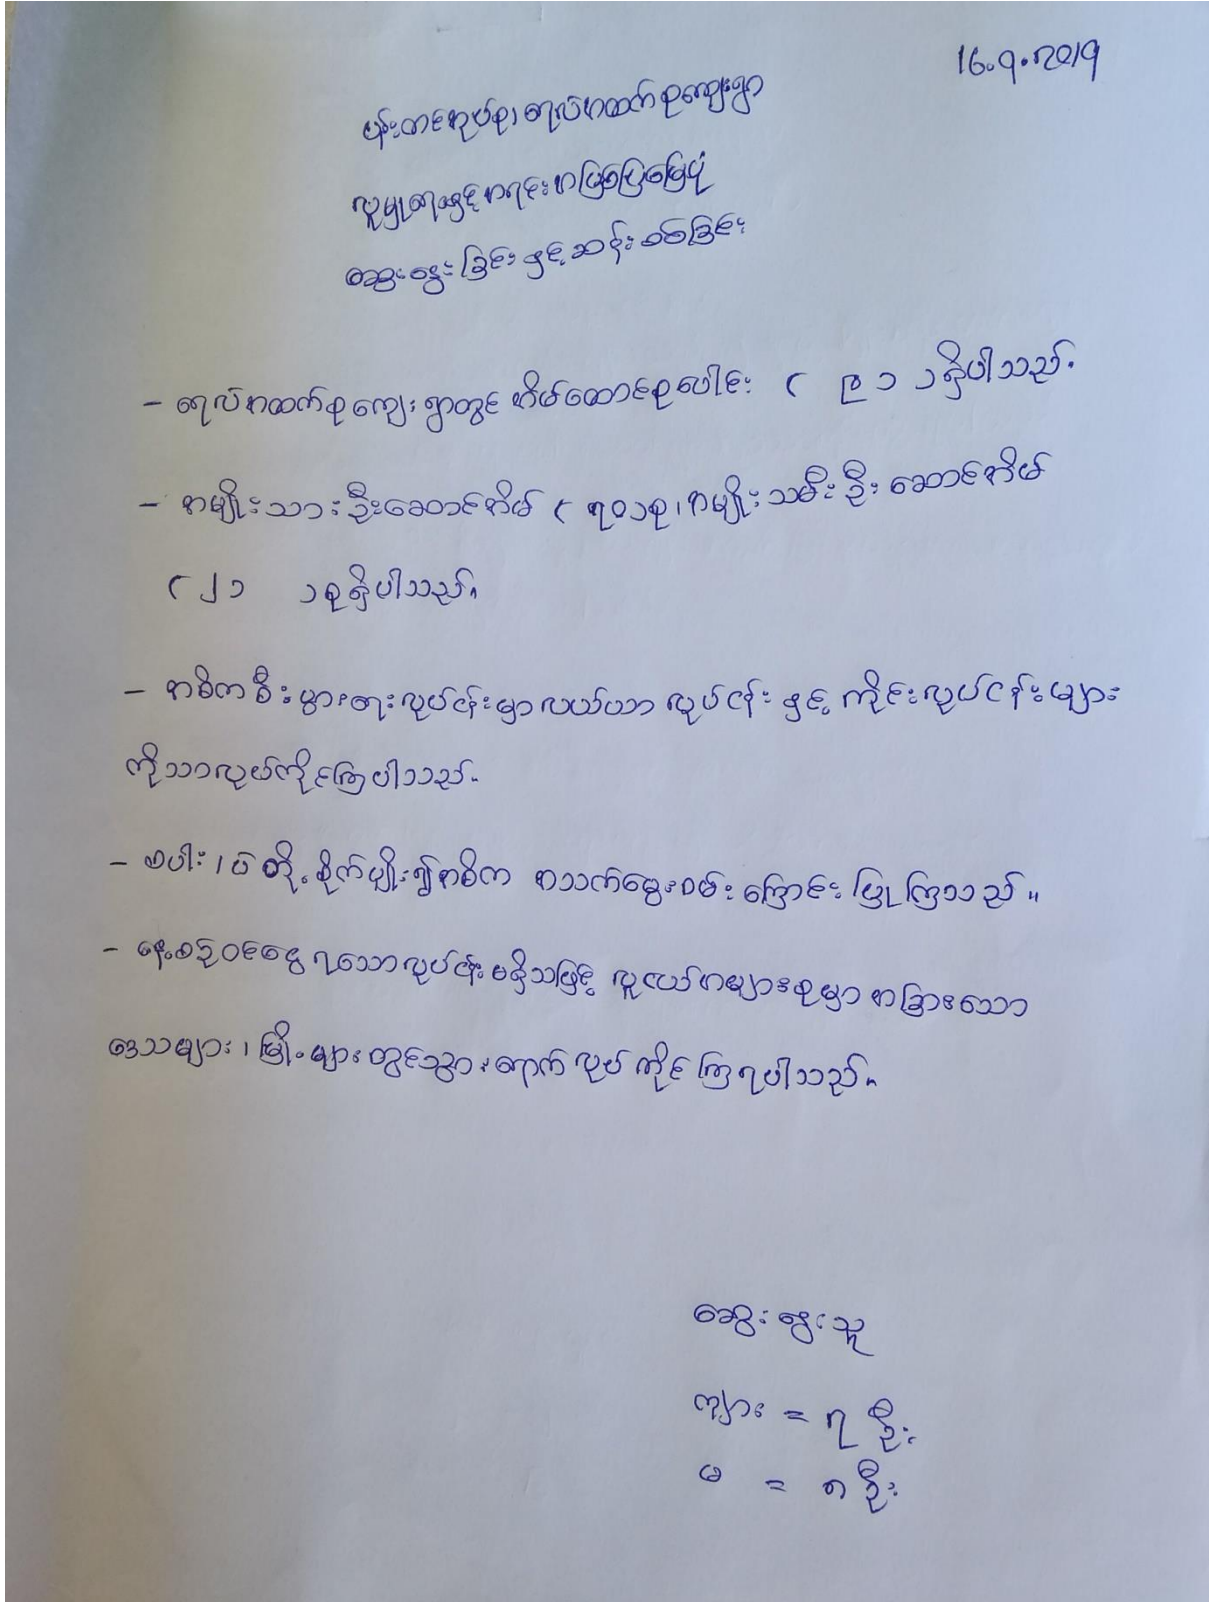 16.9.2019
ပန်းတင်အုပ်စု၊ ရေလဲအထက်စုကျေးရွာ
လူမှုရေးနှင့်အရင်းအမြစ်ပြမြေပုံ
ဆွေးနွေးခြင်းနှင့်ဆန်းစစ်ခြင်း
- ရေလဲအထက်စုကျေးရွာတွင် အိမ်ထောင်စုပေါင်း ( ၉၁ ) ရှိပါသည်.
- အမျိုးသားဦးဆောင်အိမ် ( ၇၀ )စု၊ အမျိုးသမီးဦးဆောင်အိမ်
( ၂၁ ) စုရှိပါသည်။
- အဓိကစီးပွားရေးလုပ်ငန်းမှာ လယ်ယာလုပ်ငန်းနှင့် ကိုင်းလုပ်ငန်းများ
ကိုသာလုပ်ကိုင်ကြပါသည်။
- စပါး၊ ပဲ တို့ စိုက်ပျိုး၍အဓိက အသက်မွေးဝမ်းကြောင်း ပြုကြသည်။
- နေ့စဉ်ဝင်ငွေရသောလုပ်ငန်းမရှိသဖြင့် လူငယ်အများစုမှာ အခြားသော
ဒေသများ၊ မြို့များတွင်သွားရောက်လုပ်ကိုင်ကြရပါသည်။
ဆွေးနွေးသူ
ကျား = ၇ ဦး
မ = ၈ ဦး